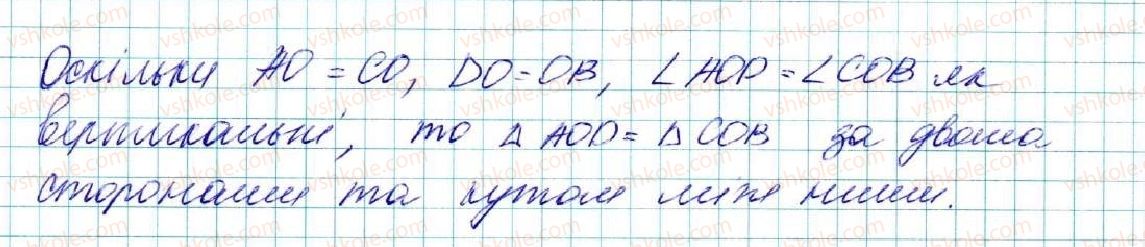 Оскільки AO = CO, DO = OB, ∠AOD = ∠COB як
вертикальні, то △AOD = △COB за двома
сторонами та кутом між ними.